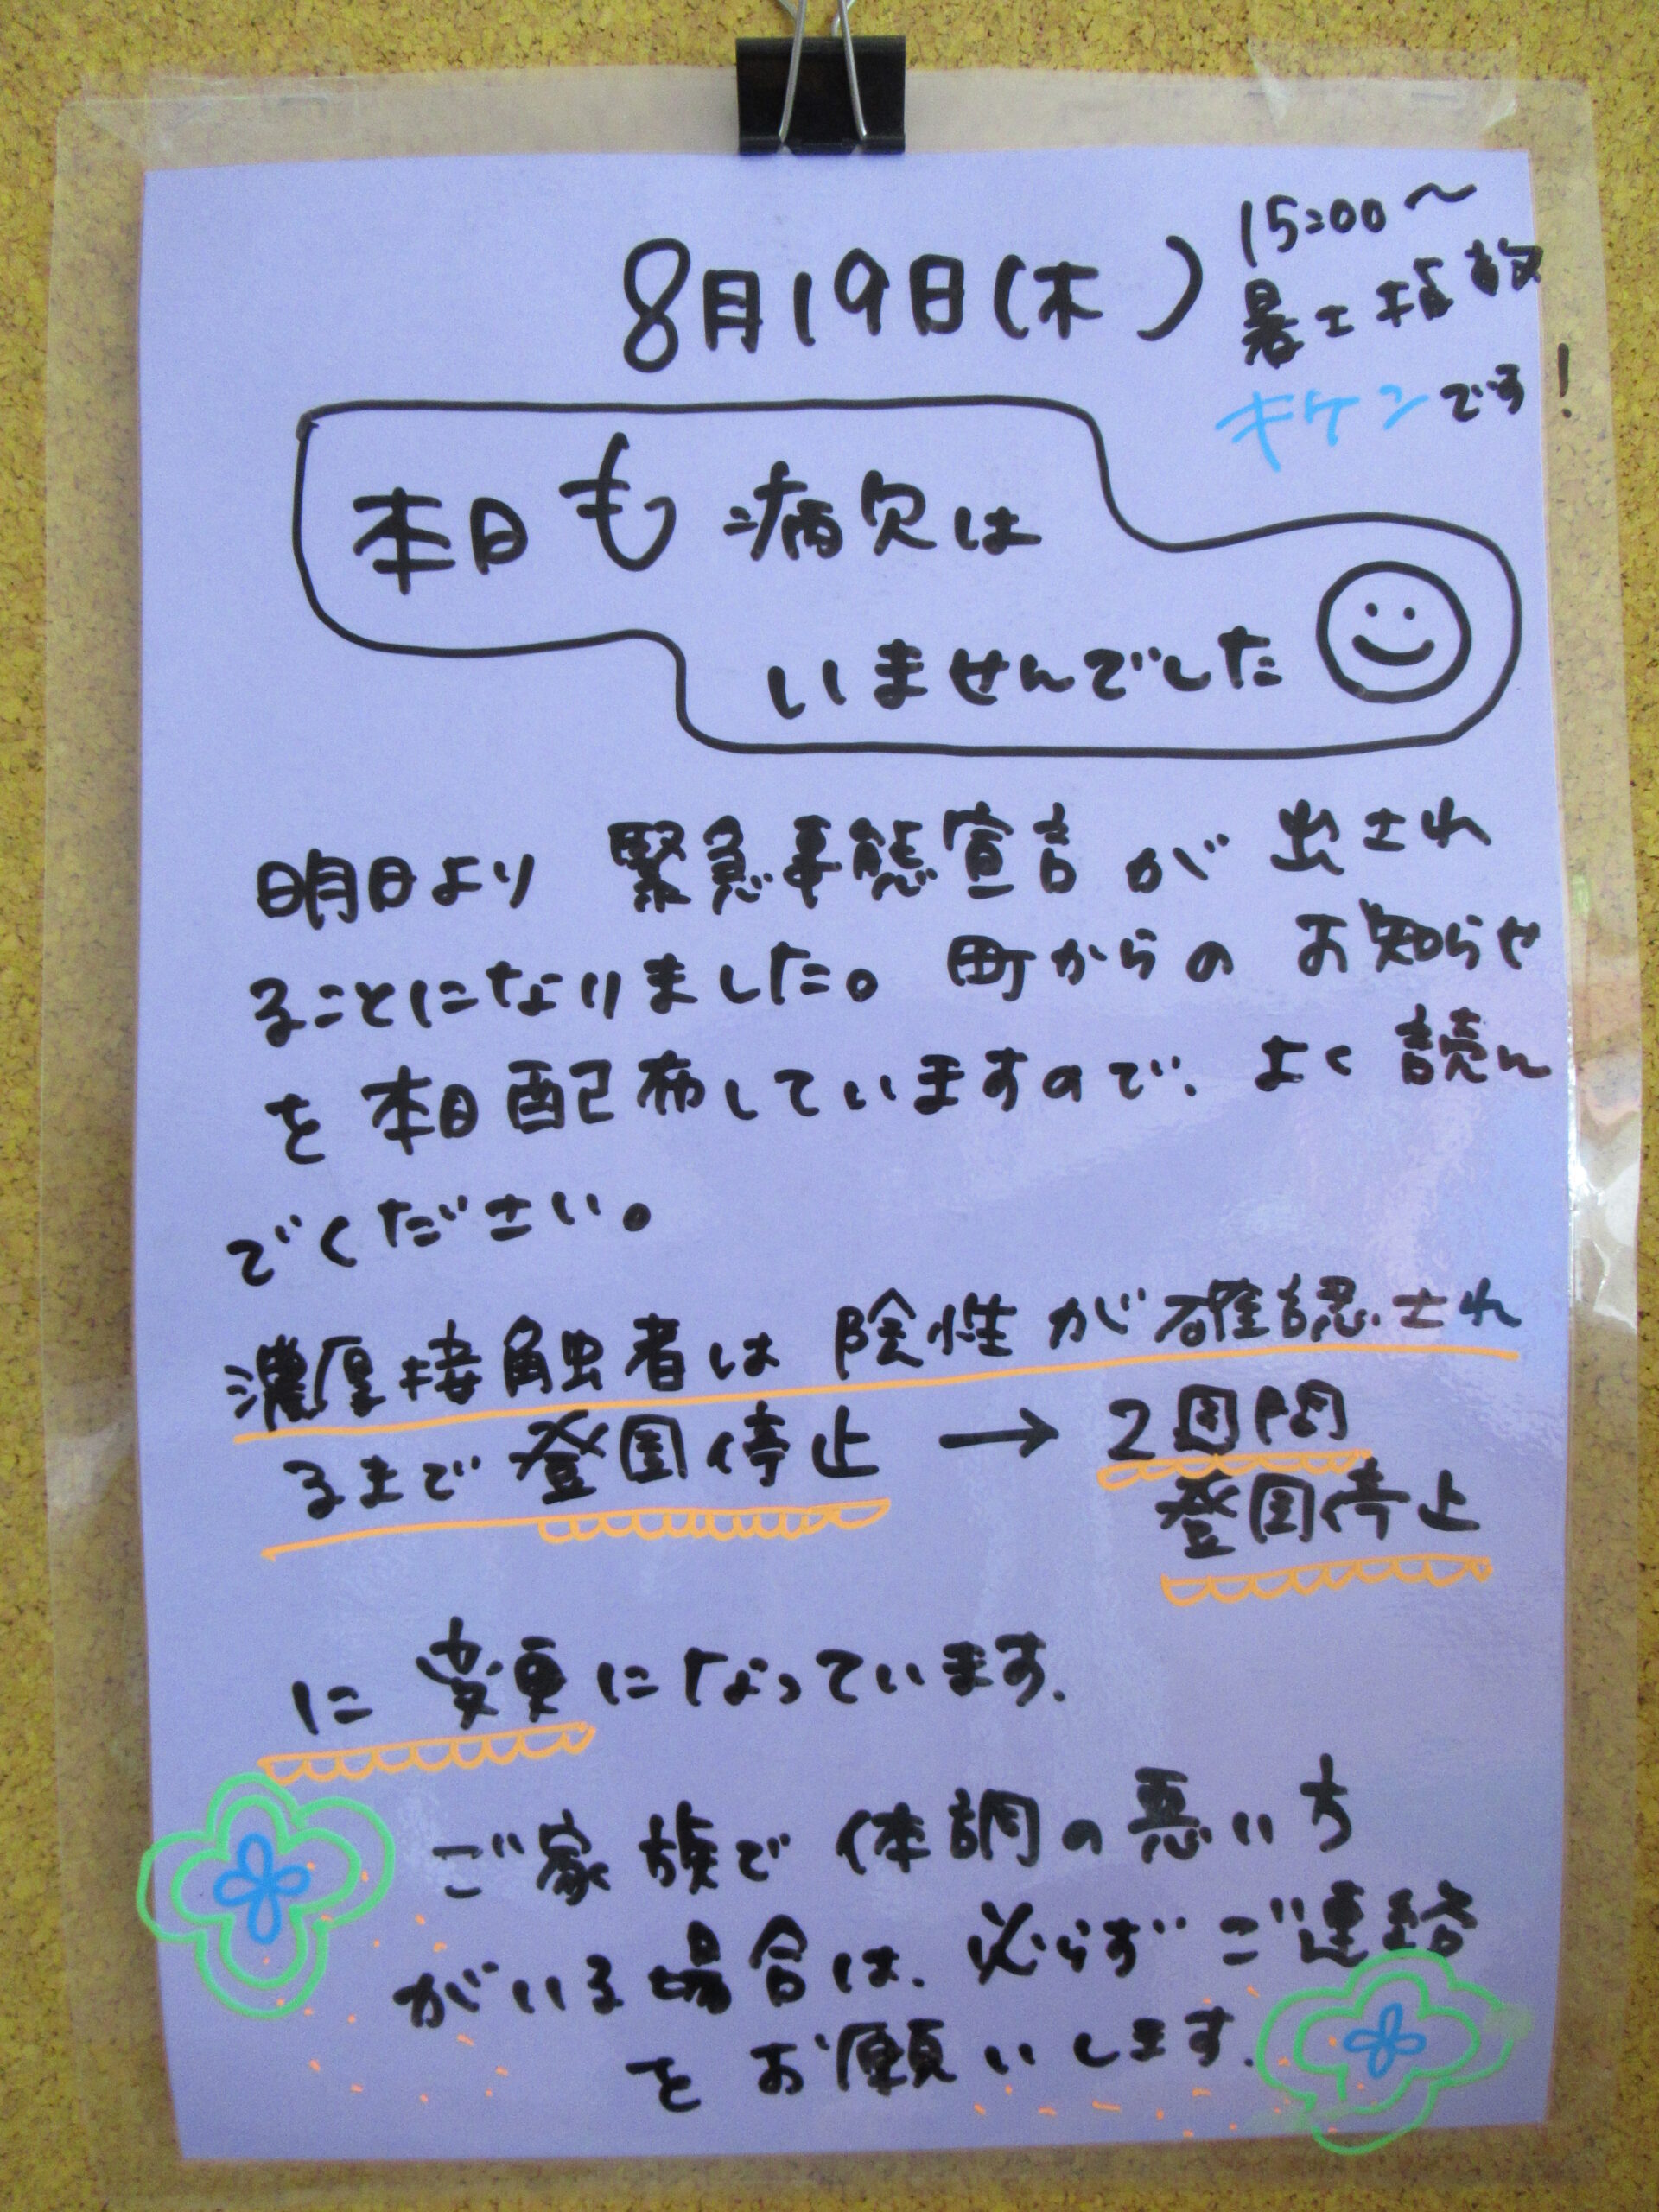 8月19日(木)
15:00〜
暑さ指数
キケンです!
本日も病欠は
いませんでした
明日より 緊急事態宣言が 出され
ることになりました。町からの お知らせ
を 本日 配布していますので、よく 読ん
でください。
濃厚接触者は 陰性が確認され
るまで 登園停止 → 2週間
登園停止
に 変更になっています.
ご家族で 体調の悪い方
がいる場合は、必らず ご連絡
を お願いします.